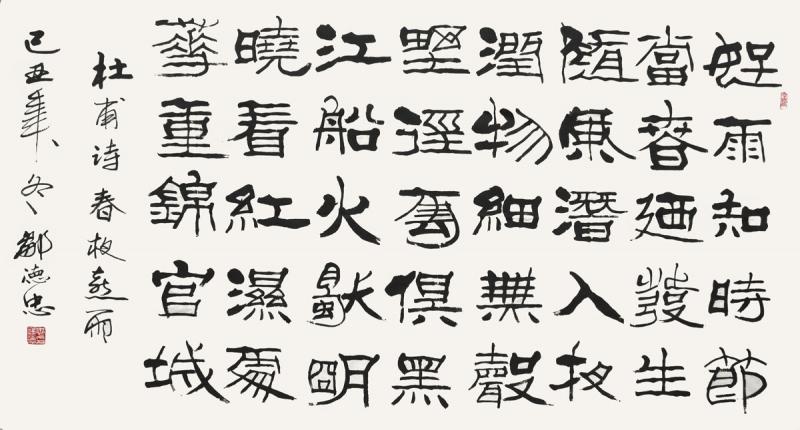 好雨知時節
當春廼發生
隨風潛入夜
潤物細無聲
野徑雲俱黑
江船火獨明
曉看紅濕處
華重錦官城
杜甫诗春夜喜雨
己丑年冬鄒德忠